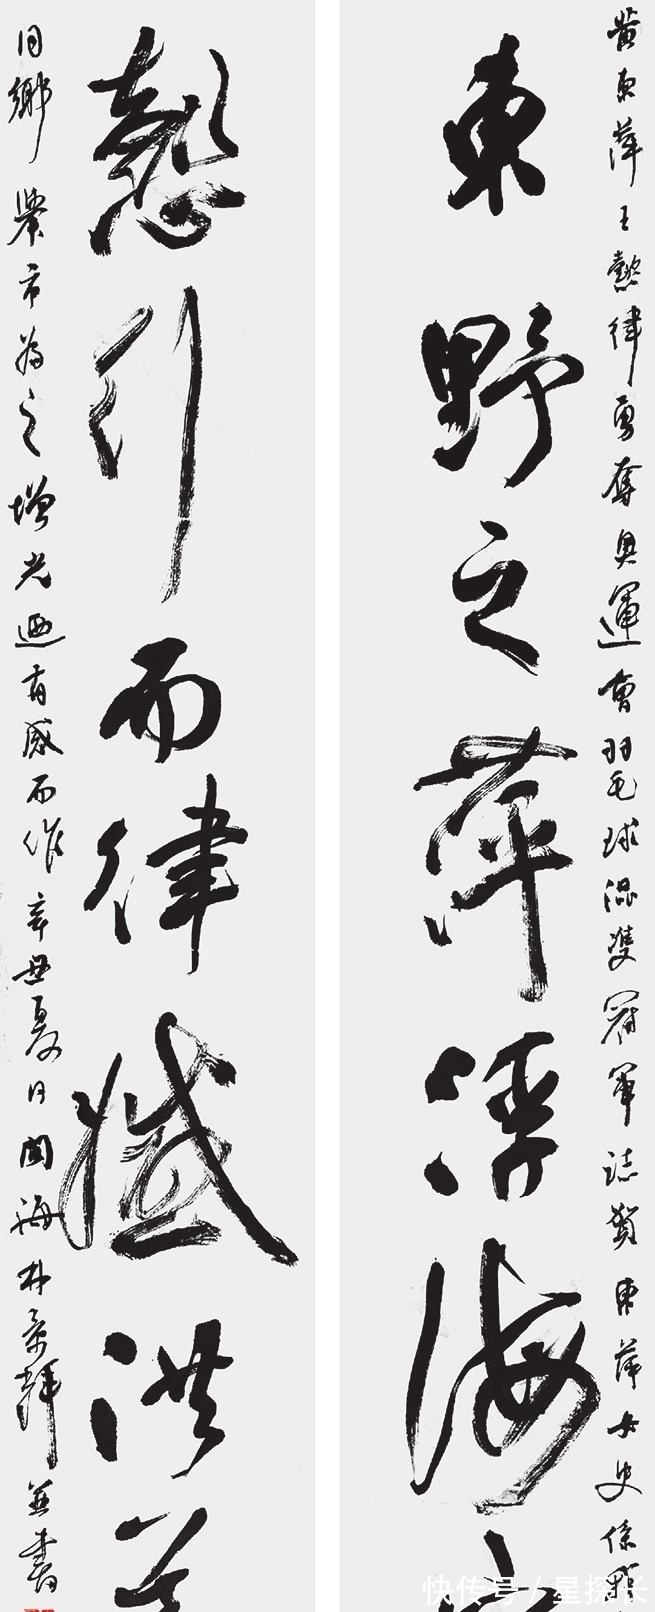 黄東萍王懿律勇奪奧運會羽毛球混雙冠軍誌賀東萍女史係
東野之萍浮海
懿行而律殲洪
同鄉舉市為之增光迺有感而作辛丑夏日閩海林景輝並書
快传号/星探长